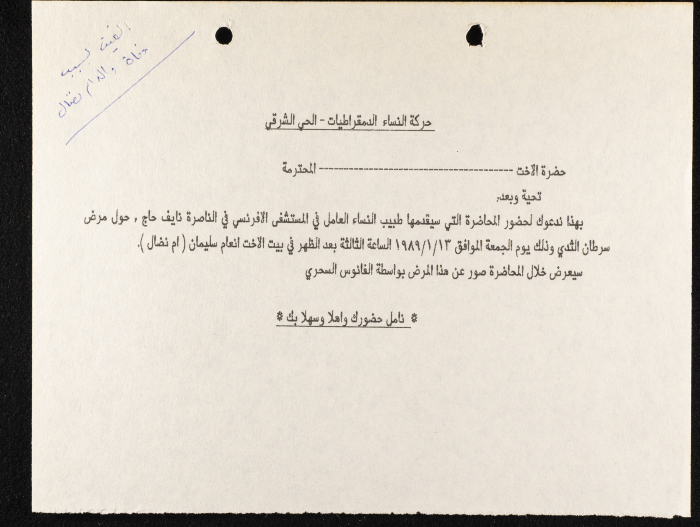 الغيت بسبب
وفاة والد ام نضال
حركة النساء الدمقراطيات - الحي الشرقي
حضرة الاخت ---------------------------------------- المحترمة
تحية وبعد,
بهذا ندعوك لحضور المحاضرة التي سيقدمها طبيب النساء العامل في المستشفى الافرنسي في الناصرة نايف حاج , حول مرض
سرطان الثدي وذلك يوم الجمعة الموافق ١٩٨٩/١/١٣ الساعة الثالثة بعد الظهر في بيت الاخت انعام سليمان ( ام نضال ).
سيعرض خلال المحاضرة صور عن هذا المرض بواسطة الفانوس السحري
* نامل حضورك واهلا وسهلا بك *